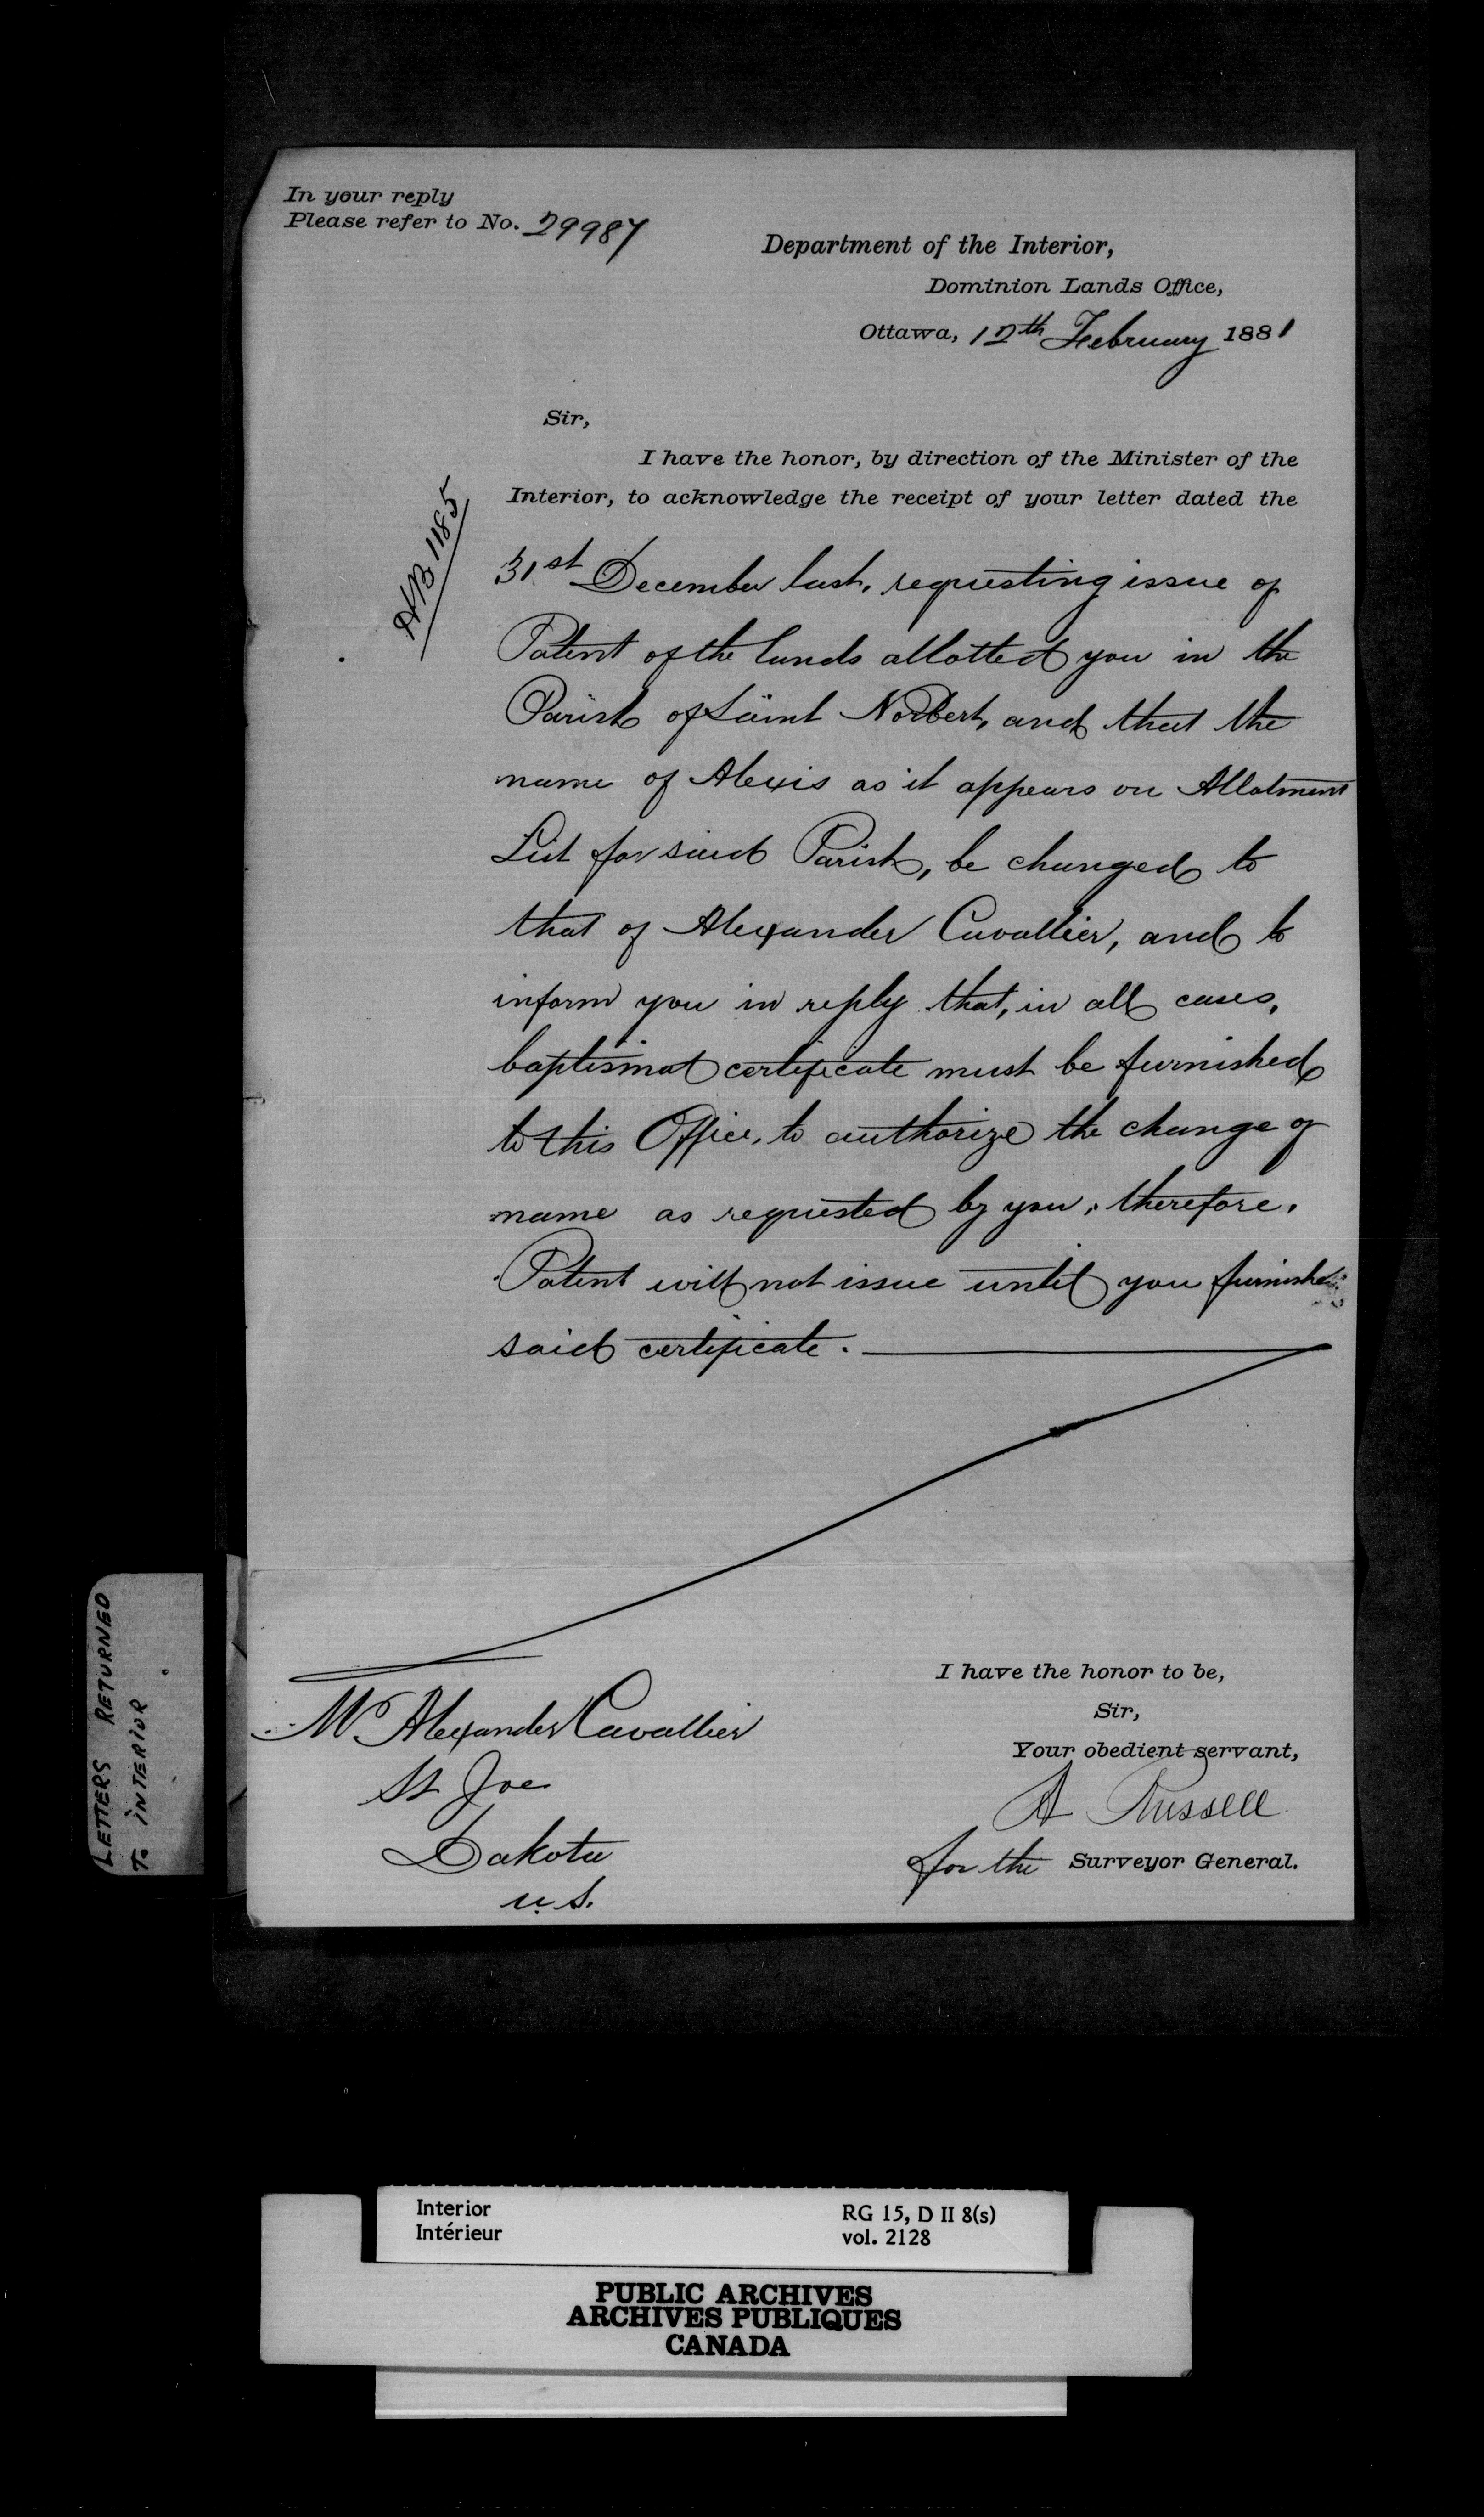 In your reply
Please refer to No. 29987
Department of the Interior,
Dominion Lands Office,
Ottawa, 12th February 1881
Sir,
I have the honor, by direction of the Minister of the
Interior, to acknowledge the receipt of your letter dated the
HB 1185
31st December last, requesting issue of
Patent of the lands allotted you in the
Parish of Saint Norbert, and that the
name of Alexis as it appears on Allotment
List for said Parish, be changed to
that of Alexander Cavallier, and to
inform you in reply that, in all cases,
baptismal certificate must be furnished
to this Office, to authorize the change of
name as requested by you, therefore,
Patent will not issue until you furnish
said certificate.
I have the honor to be,
Sir,
Your obedient servant,
A Russell
for the Surveyor General.
Mr Alexander Cavallier
St Joe
Dakota
U.S.
LETTERS RETURNED
TO INTERIOR
Interior
Intérieur
RG 15, D II 8(s)
vol. 2128
PUBLIC ARCHIVES
ARCHIVES PUBLIQUES
CANADA